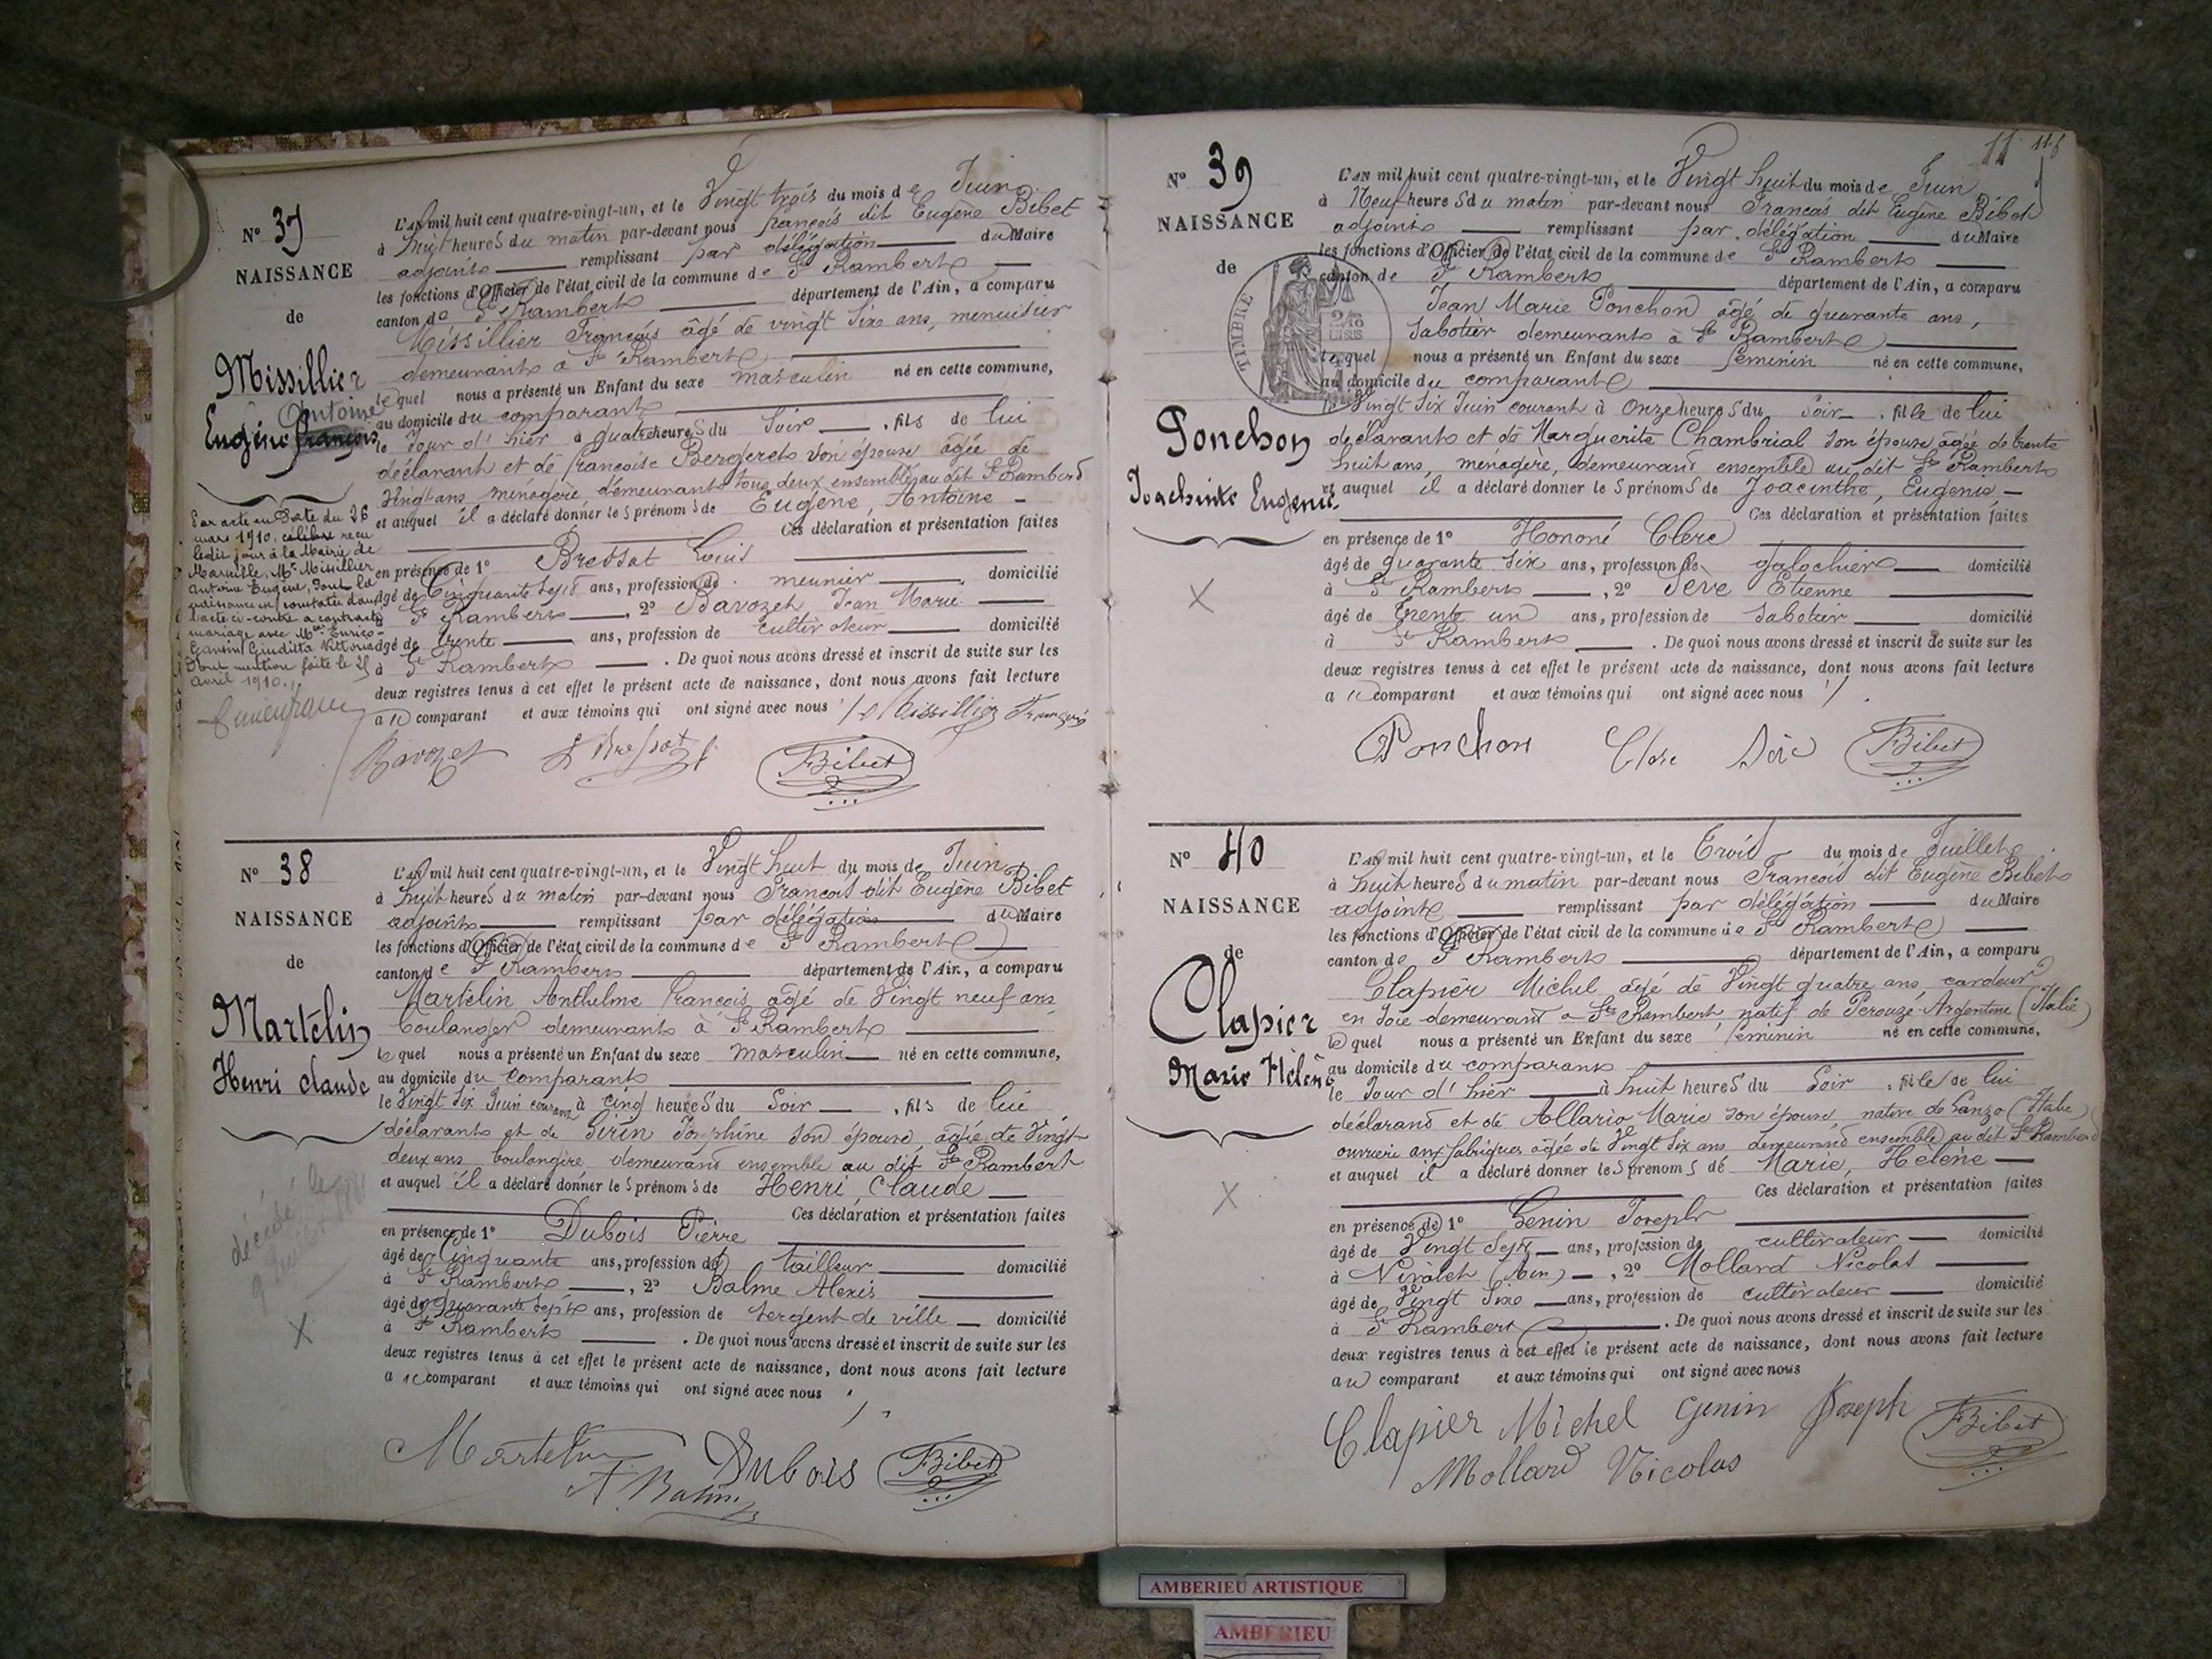 N° 37
NAISSANCE
de
Missillier
Antoine
Eugène françois
Par acte en date du 26
mars 1910, célébré reçu
ledit jour à la Mairie de
Marseille, Mr Missillier
Antoine Eugène, dont la
naissance est constatée dans
l'acte ci-contre a contracté
mariage avec Mlle Enrico-
Giuditta Vittoria
Dont mention faite le 25
avril 1910.
L'AN mil huit cent quatre-vingt-un, et le Vingt trois du mois de Juin
à huit heures du matin par-devant nous françois dit Eugène Bibet
adjoint remplissant par délégation du Maire
les fonctions d'Officier de l'état civil de la commune de St Rambert
canton de St Rambert département de l'Ain, a comparu
Missillier François âgé de vingt six ans, menuisier
demeurant à St Rambert
lequel nous a présenté un Enfant du sexe masculin né en cette commune,
au domicile du comparant
le Jour d'hier à quatre heures du Soir, fils de lui
déclarant et de françoise Bergeret son épouse âgée de
Vingt ans ménagère, demeurant tous deux ensemble au dit St Rambert
et auquel il a déclaré donner les prénoms de Eugène, Antoine
Ces déclaration et présentation faites
en présence de 1° Bressat Louis
âgé de Cinquante sept ans, profession de meunier domicilié
à St Rambert, 2° Bavozet Jean Marie
âgé de trente ans, profession de cultivateur domicilié
à St Rambert. De quoi nous avons dressé et inscrit de suite sur les
deux registres tenus à cet effet le présent acte de naissance, dont nous avons fait lecture
au comparant et aux témoins qui ont signé avec nous Missillier François
Bavozet Bressat Bibet
N° 38
NAISSANCE
de
Martelin
Henri Claude
décédé le
9 Juillet 1881
X
L'AN mil huit cent quatre-vingt-un, et le Vingt huit du mois de Juin
à huit heures du matin par-devant nous François dit Eugène Bibet
adjoint remplissant par délégation du Maire
les fonctions d'Officier de l'état civil de la commune de St Rambert
canton de St Rambert département de l'Ain, a comparu
Martelin Anthelme François âgé de Vingt neuf ans
boulanger demeurant à St Rambert
lequel nous a présenté un Enfant du sexe masculin né en cette commune,
au domicile du Comparant
le Vingt Six Juin courant à cinq heures du Soir, fils de lui
déclarant et de Sirin Joséphine son épouse, âgée de Vingt
deux ans boulangère demeurant ensemble au dit St Rambert
et auquel il a déclaré donner les prénoms de Henri, Claude
Ces déclaration et présentation faites
en présence de 1° Dubois Pierre
âgé de Cinquante ans, profession de tailleur domicilié
à St Rambert, 2° Balme Alexis
âgé de quarante sept ans, profession de sergent de ville domicilié
à St Rambert. De quoi nous avons dressé et inscrit de suite sur les
deux registres tenus à cet effet le présent acte de naissance, dont nous avons fait lecture
au comparant et aux témoins qui ont signé avec nous
Martelin Dubois Bibet
A. Balme
11 116
N° 39
NAISSANCE
de
TIMBRE
Ponchon
Joachinte Eugénie
X
L'AN mil huit cent quatre-vingt-un, et le Vingt huit du mois de Juin
à Neuf heures du matin par-devant nous François dit Eugène Bibet
adjoint remplissant par délégation du Maire
les fonctions d'Officier de l'état civil de la commune de St Rambert
canton de St Rambert département de l'Ain, a comparu
Jean Marie Ponchon âgé de quarante ans,
Sabotier demeurant à St Rambert
lequel nous a présenté un Enfant du sexe feminin né en cette commune,
au domicile du comparant
le Vingt Six Juin courant à Onze heures du Soir, fille de lui
déclarant et de Marguerite Chambrial son épouse âgée de trente
huit ans, ménagère, demeurant ensemble au dit St Rambert
et auquel il a déclaré donner les prénoms de Joacinthe, Eugenie
Ces déclaration et présentation faites
en présence de 1° Honoré Clerc
âgé de quarante Six ans, profession de galochier domicilié
à St Rambert, 2° Sève Etienne
âgé de trente un ans, profession de Sabotier domicilié
à St Rambert. De quoi nous avons dressé et inscrit de suite sur les
deux registres tenus à cet effet le présent acte de naissance, dont nous avons fait lecture
au comparant et aux témoins qui ont signé avec nous
Ponchon Clerc Sève Bibet
N° 40
NAISSANCE
de
Clapier
Marie Hélène
X
L'AN mil huit cent quatre-vingt-un, et le Trois du mois de Juillet
à huit heures du matin par-devant nous François dit Eugène Bibet
adjoint remplissant par délégation du Maire
les fonctions d'Officier de l'état civil de la commune de St Rambert
canton de St Rambert département de l'Ain, a comparu
Clapier Michel âgé de Vingt quatre ans, cardeur
en soie demeurant à St Rambert natif de Perouze Argentine (Italie)
lequel nous a présenté un Enfant du sexe feminin né en cette commune,
au domicile du comparant
le Jour d'hier à huit heures du Soir, fille de lui
déclarant et de Allario Marie son épouse, native de Lanzo (Italie)
ouvrière aux fabriques âgée de Vingt Six ans demeurant ensemble au dit St Rambert
et auquel il a déclaré donner les prenoms de Marie, Hélène
Ces déclaration et présentation faites
en présence de 1° Genin Joseph
âgé de Vingt Sept ans, profession de cultivateur domicilié
à Nivolet (Ain), 2° Mollard Nicolas
âgé de Vingt Six ans, profession de cultivateur domicilié
à St Rambert. De quoi nous avons dressé et inscrit de suite sur les
deux registres tenus à cet effet le présent acte de naissance, dont nous avons fait lecture
au comparant et aux témoins qui ont signé avec nous
Clapier Michel Genin Joseph Bibet
Mollard Nicolas
AMBERIEU ARTISTIQUE
AMBERIEU